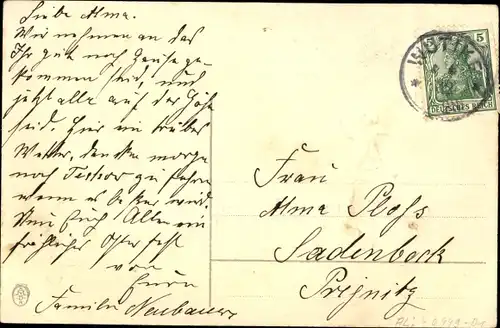 Liebe Alma.
Wir nehmen an das
Ihr gut nach Hause ge-
kommen seid, und
jetzt alle auf der Höhe
seid. Hier ein trübes
Wetter, denken morgen
nach zu fahren
wenn es besser wird.
Euch Allen ein
fröhliches Osterfest
von
Eure
Familie Neubauer
Frau
Alma Ploss
Sadenbeck
Prignitz
5
DEUTSCHES REICH